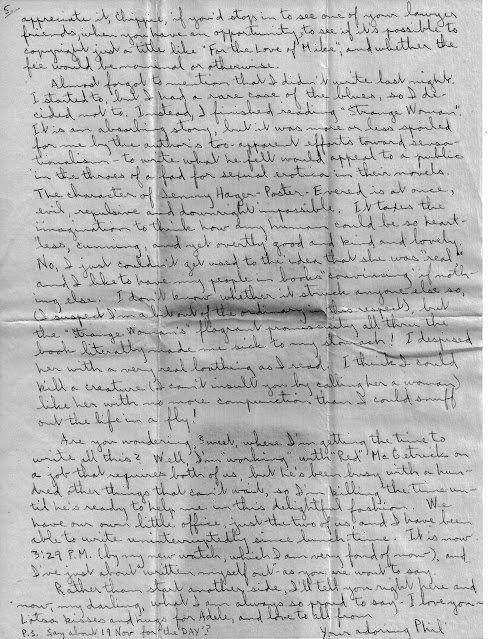 5.
appreciate it, Chippie, if you'd stop in to see one of your lawyer
friends, when you have an opportunity, to see if it's possible to
copyright just a title like "For the Love of Mike", and whether the
fee would be nominal or otherwise.
Almost forgot to mention that I didn't write last night.
I started to, but I had a rare case of the blues, so I de-
cided not to. Instead, I finished reading "Strange Woman".
It is an absorbing story, but it was more or less spoiled
for me by the author's too-apparent efforts toward sensa-
tionalism - to write what he felt would appeal to a public
in the throes of a fad for sex and erotica in their novels.
The character of Jenny Hager-Poster-Evered is at once,
evil, repulsive and downright impossible. It taxes the
imagination to think how any human could be so heart-
less, cunning, and yet overtly good and kind and lovely.
No, I just couldn't get used to the idea that she was "real",
and I like to have my people in books "convincing" if noth-
ing else. I don't know whether it struck anyone else so,
(I suspect I'm a bit out of the ordinary in this respect), but
the "Strange Woman's" flagrant promiscuity all thru the
book literally made me sick to my stomach! I despised
her with a very real loathing as I read. I think I could
kill a creature (I can't insult you by calling her a woman)
like her with no more compunction than I could snuff
out the life in a fly!
Are you wondering, Sweet, where I'm getting the time to
write all this? Well, I'm "working" with "Red" McGetrick on
a job that requires both of us, but he's been busy with a hun-
dred other things that can't wait, so I'm killing the time un-
til he's ready to help me in this delightful fashion. We
have our own little office, just the two of us, and I have been
able to write uninterruptedly since lunch-time. It is now
3:29 P.M. (by my new watch, which I am very fond of now), and
I've just about "written myself out" as you are want to say.
Rather than start another side, I'll tell you right here and
now, my darling, what I am always so proud to say - I love you -
Lotsa kisses and hugs for Adele, and love to all from
Your adoring Phil
P.S. Say about 19 Nov for "the DAY"?